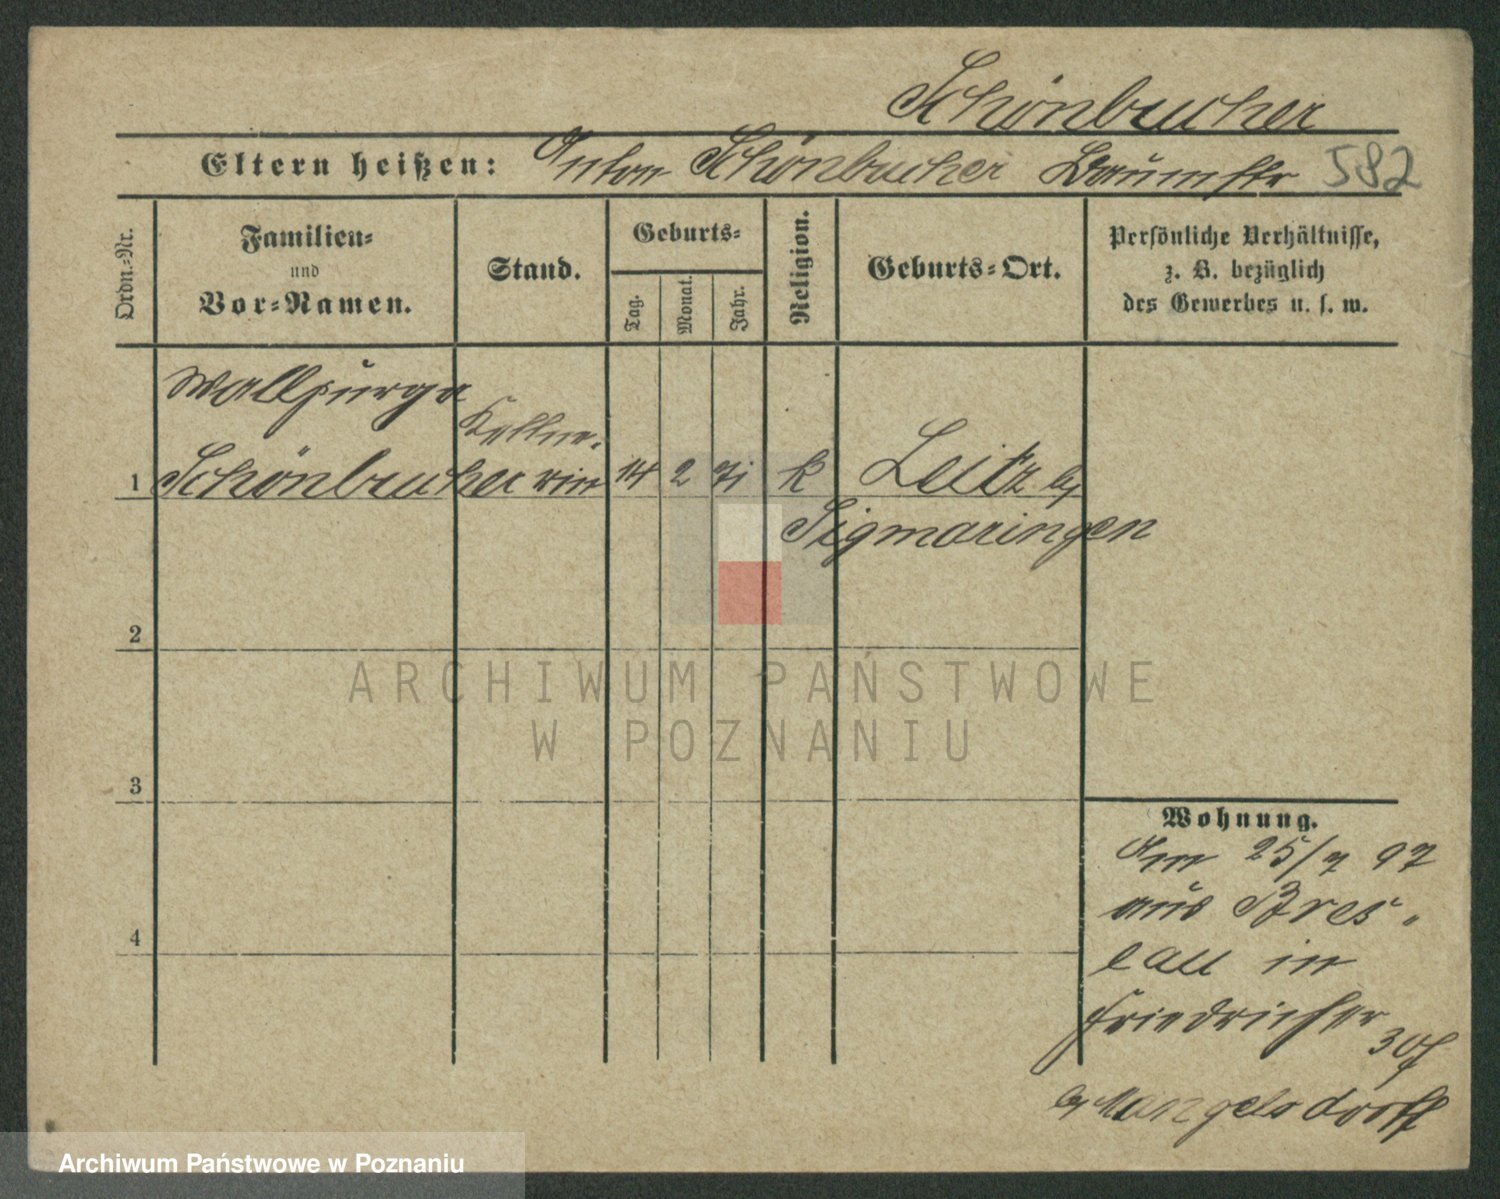 Schönbucher
Eltern heißen: Anton Schönbucher 582
Ordn.-Nr.
Familien-
und
Vor-Namen.
Stand.
Geburts-
Tag.
Monat.
Jahr.
Religion.
Geburts-Ort.
Persönliche Verhältnisse,
z. B. bezüglich
des Gewerbes u. s. w.
Wallpurga Kellne-
1 Schönbucher rin 14 2 71 k Leitz b/
Sigmaringen
2
3
4
ARCHIWUM PAŃSTWOWE
W POZNANIU
Wohnung.
Am 25/7 97
aus Bres-
lau in
Friedrichstr
30 f
b/ Mangelsdorff
Archiwum Państwowe w Poznaniu